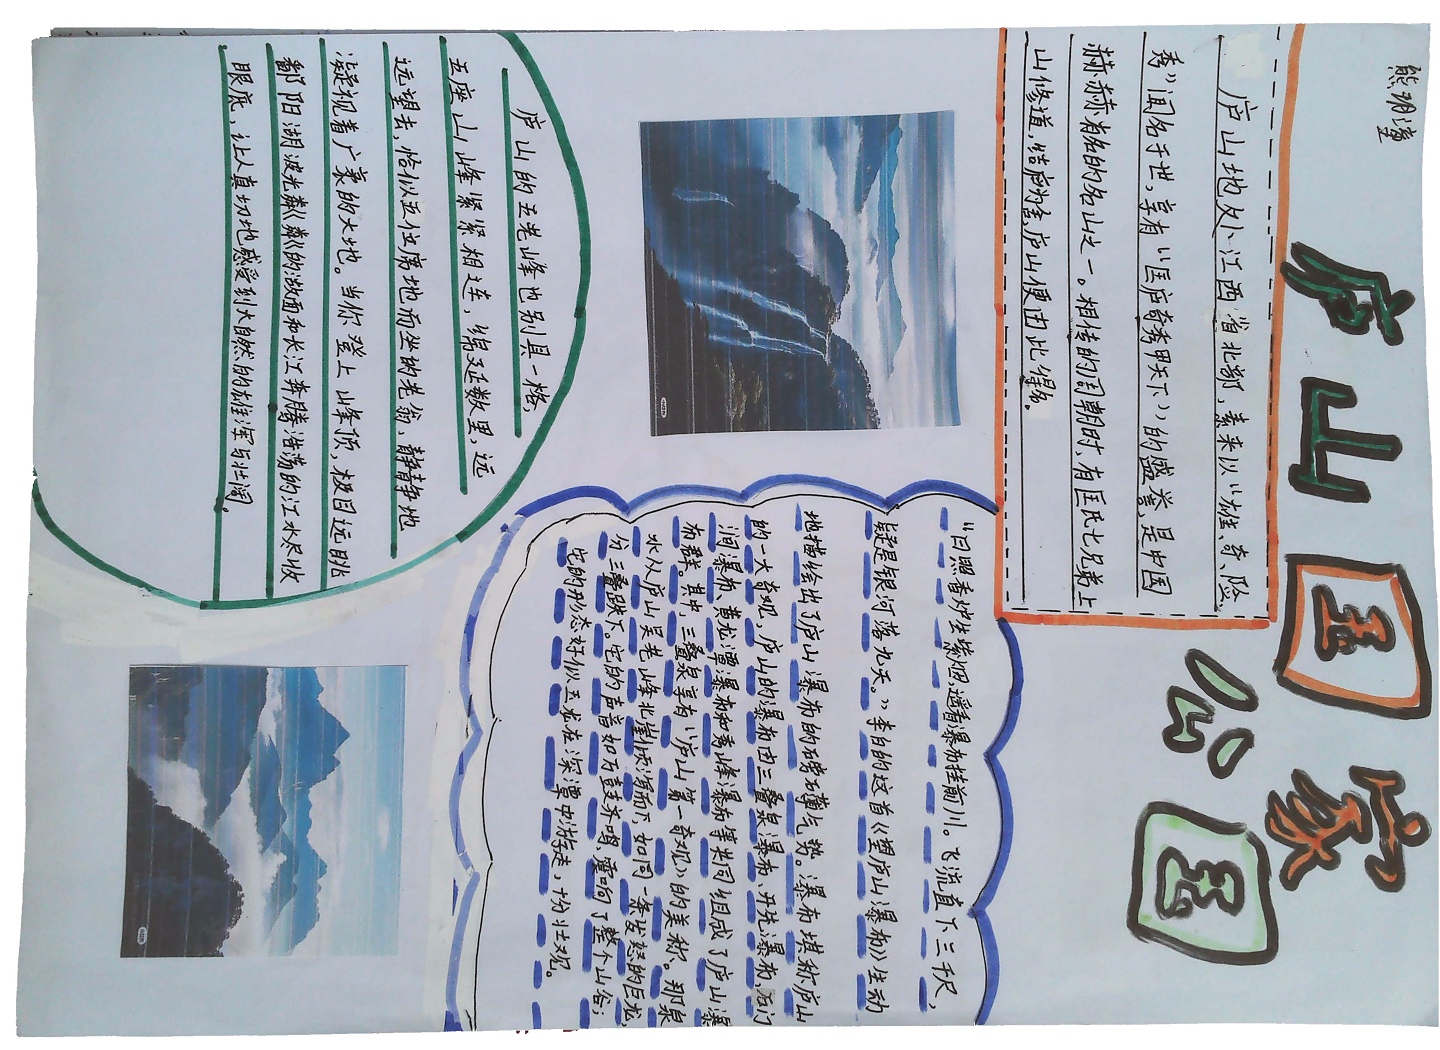 熊玥潼
庐山国家
公园
庐山地处江西省北部,素来以“雄、奇、险、
秀”闻名于世,享有“匡庐奇秀甲天下”的盛誉,是中国
赫赫有名的名山之一。相传的周朝时,有匡氏七兄弟上
山修道,结庐为舍,庐山便由此得名。
“日照香炉生紫烟,遥看瀑布挂前川。飞流直下三千尺,
疑是银河落九天。”李白的这首《望庐山瀑布》生动
地描绘出了庐山瀑布的磅礴气势。瀑布堪称庐山
的一大奇观,庐山的瀑布由三叠泉瀑布、开先瀑布、石门
涧瀑布、黄龙潭瀑布和秀峰瀑布等共同组成了庐山瀑
布群。其中,三叠泉享有“庐山第一奇观”的美称。那泉
水从庐山吴老峰北崖倾泻而下,如同一条发怒的巨龙,
分三叠跌下。它的声音如万鼓齐鸣,震响了整个山谷;
它的形态好似玉龙在深潭中游走,十份壮观。
庐山的五老峰也别具一格,
五座山峰紧紧相连,绵延数里,远
远望去,恰似五位席地而坐的老翁,静静地
凝视着广袤的大地。当你登上山峰顶,极目远眺
鄱阳湖波光粼粼的湖面和长江奔腾浩荡的江水尽收
眼底,让人真切地感受到大自然的雄浑与壮阔。